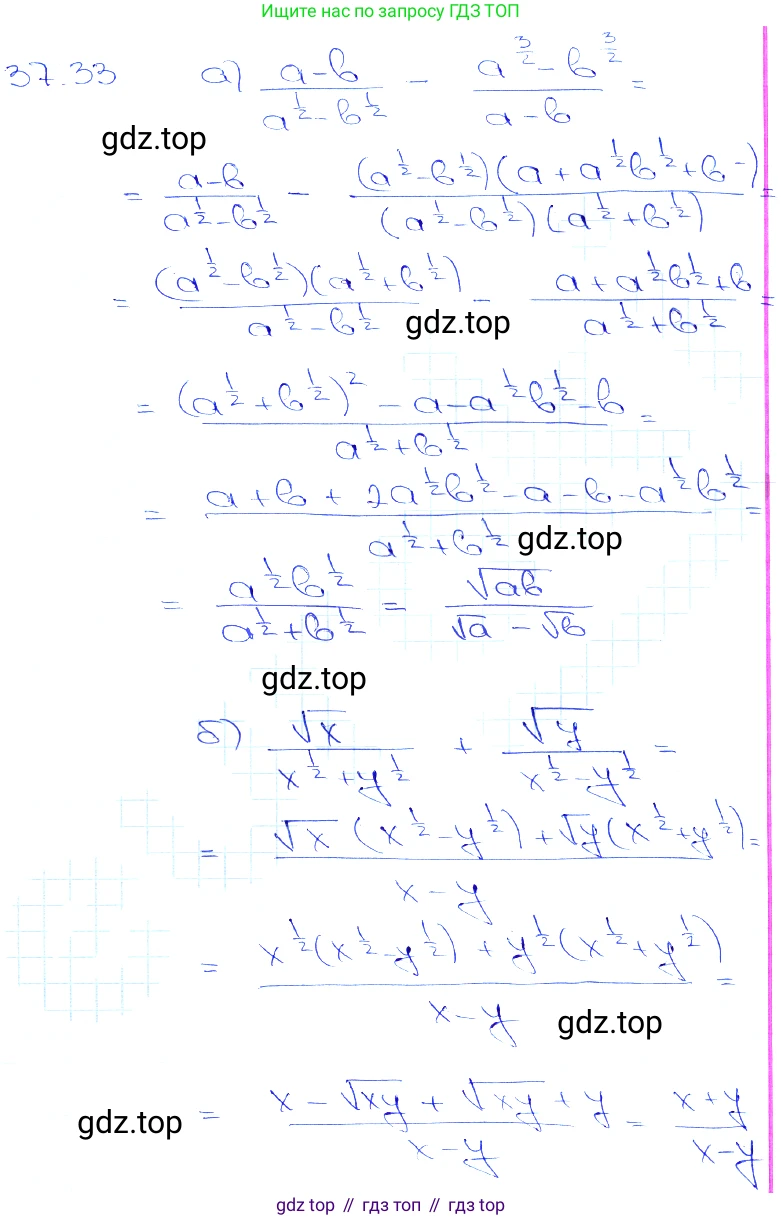 Ищите нас по запросу ГДЗ ТОП
37.33 а) (a-b)/(a^(1/2)-b^(1/2)) - (a^(3/2)-b^(3/2))/(a-b) =
gdz.top
= (a-b)/(a^(1/2)-b^(1/2)) - ((a^(1/2)-b^(1/2))(a+a^(1/2)b^(1/2)+b))/((a^(1/2)-b^(1/2))(a^(1/2)+b^(1/2))) =
= ((a^(1/2)-b^(1/2))(a^(1/2)+b^(1/2)))/(a^(1/2)-b^(1/2)) - (a+a^(1/2)b^(1/2)+b)/(a^(1/2)+b^(1/2)) =
gdz.top
= ((a^(1/2)+b^(1/2))^2-a-a^(1/2)b^(1/2)-b)/(a^(1/2)+b^(1/2)) =
= (a+b+2a^(1/2)b^(1/2)-a-b-a^(1/2)b^(1/2))/(a^(1/2)+b^(1/2)) =
gdz.top
= (a^(1/2)b^(1/2))/(a^(1/2)+b^(1/2)) = √ab/(√a-√b)
gdz.top
б) √x/(x^(1/2)+y^(1/2)) + √y/(x^(1/2)-y^(1/2)) =
= (√x(x^(1/2)-y^(1/2))+√y(x^(1/2)+y^(1/2)))/(x-y) =
= (x^(1/2)(x^(1/2)-y^(1/2))+y^(1/2)(x^(1/2)+y^(1/2)))/(x-y) =
gdz.top
gdz.top
= (x-√xy+√xy+y)/(x-y) = (x+y)/(x-y)
gdz top // гдз топ // gdz top